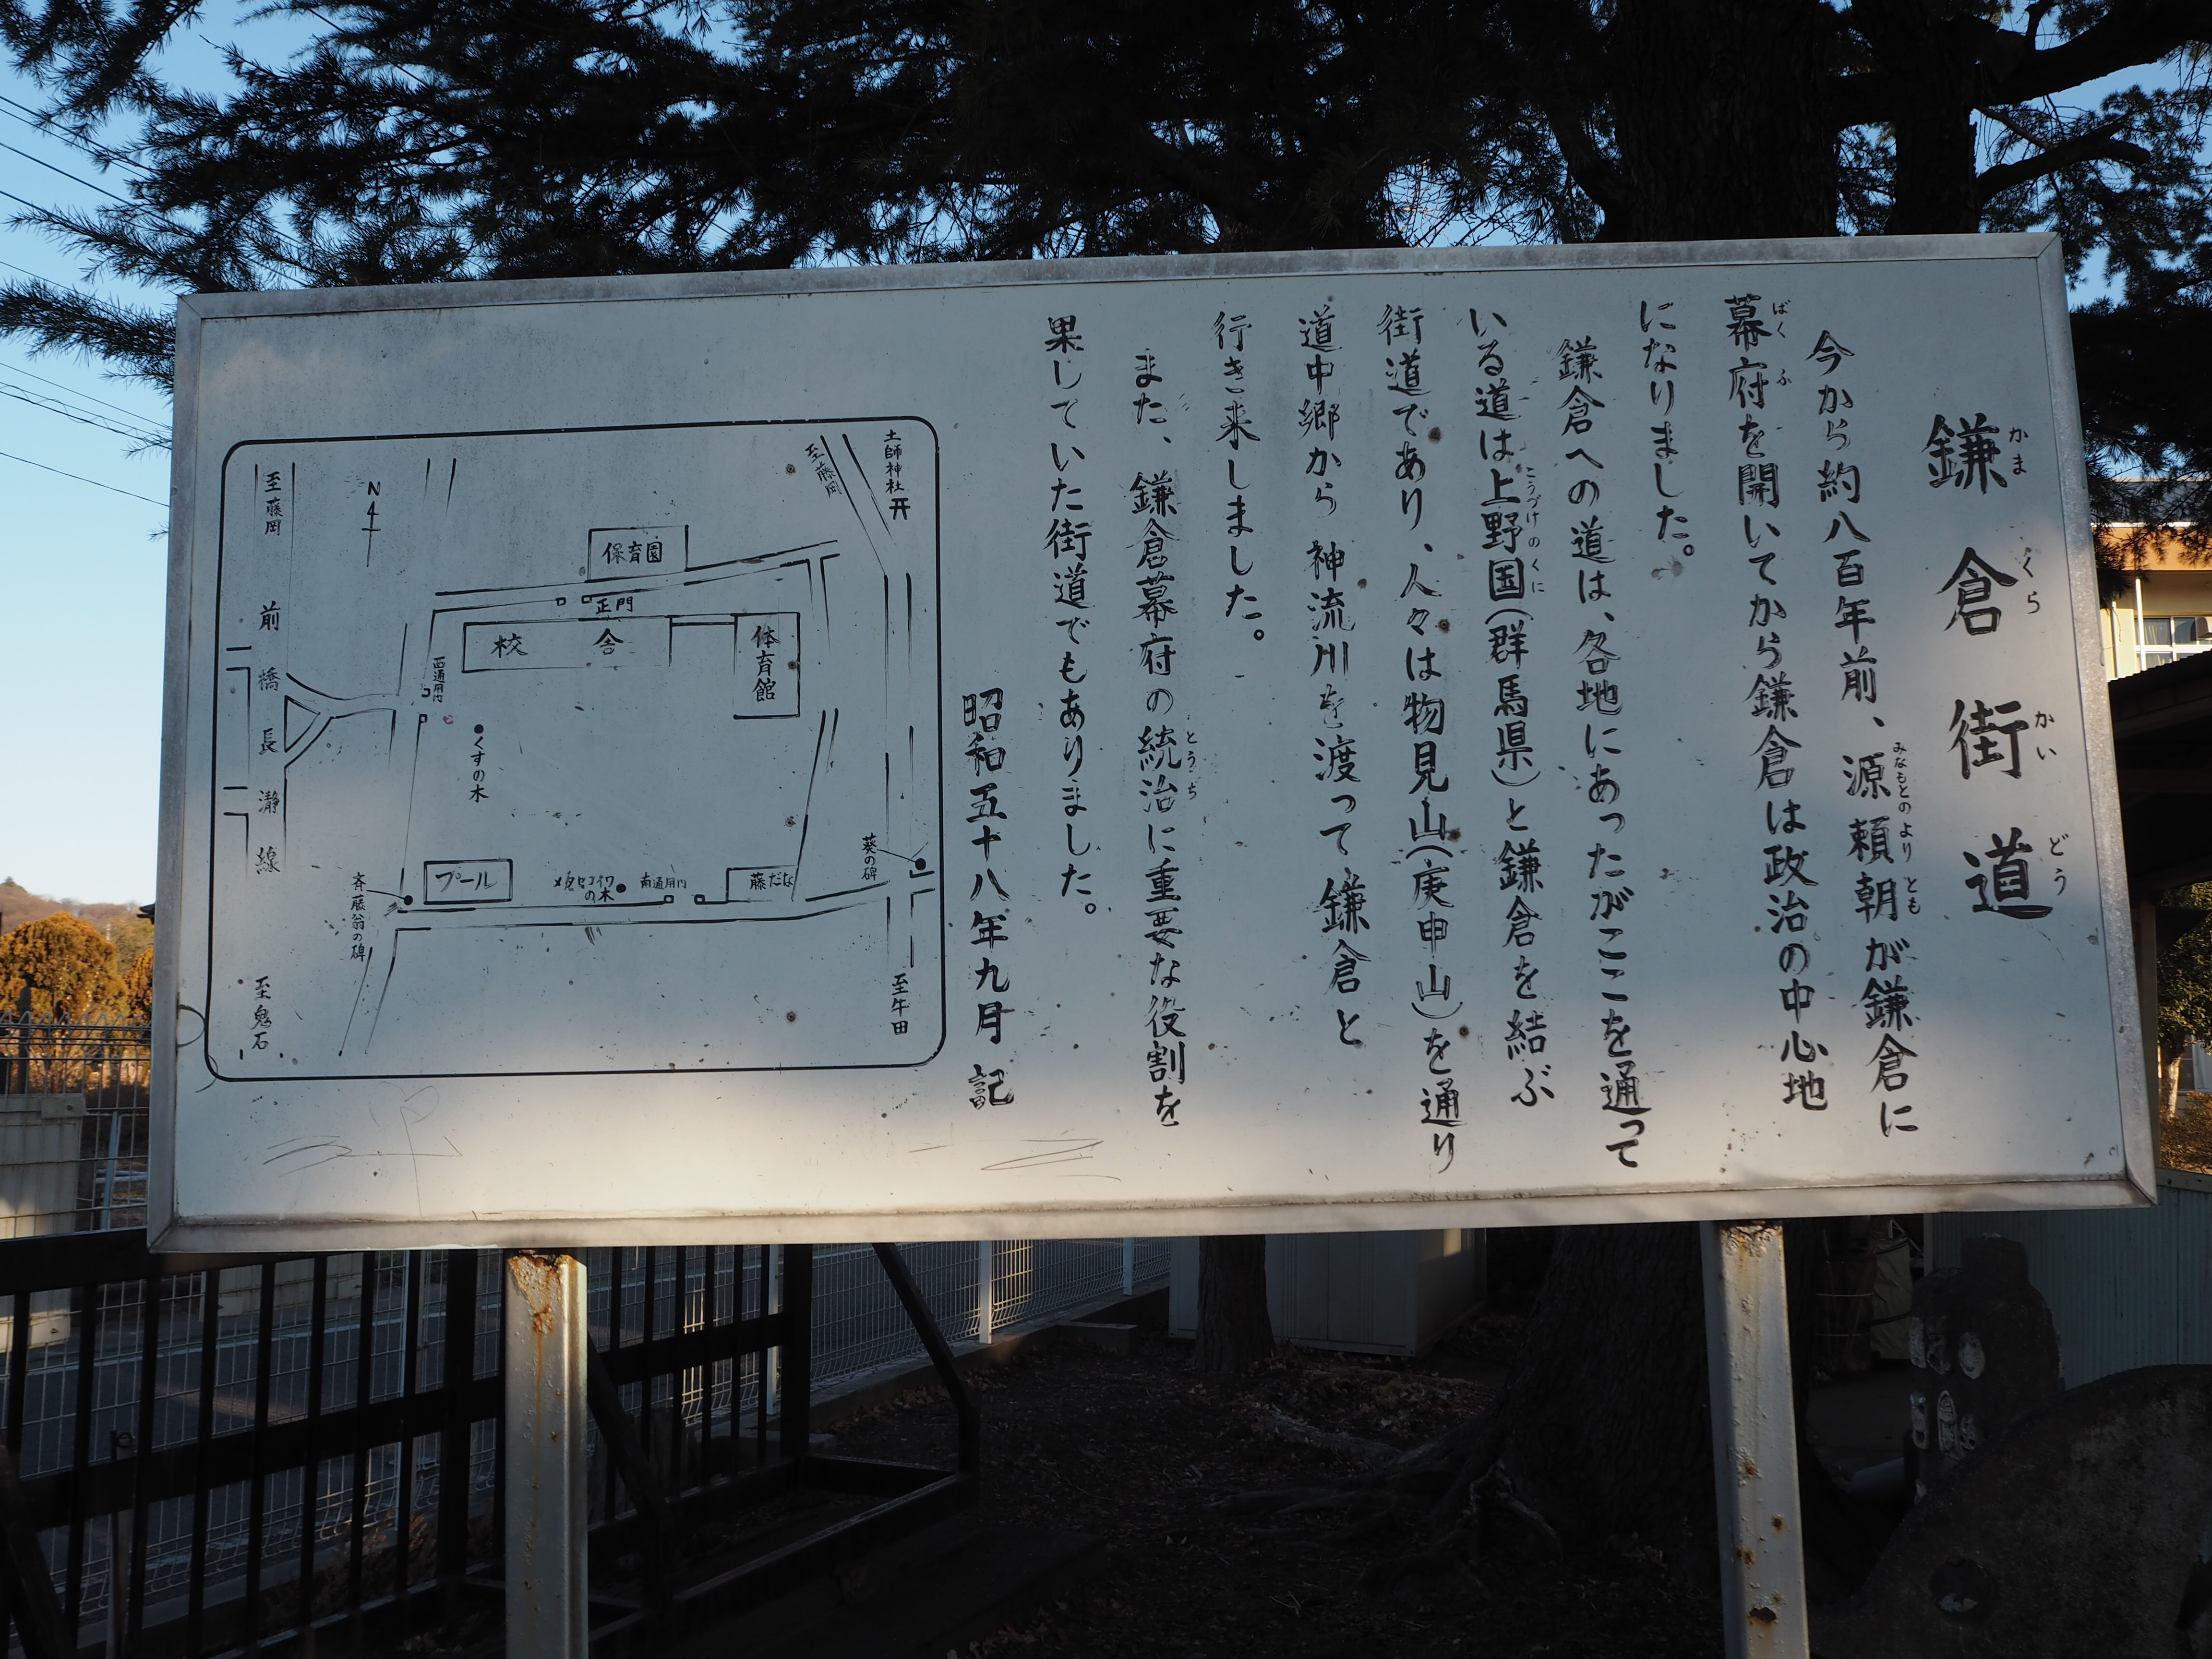 鎌倉街道
かまくらかいどう
今から約八百年前、源頼朝が鎌倉に
みなもとのよりとも
幕府を開いてから鎌倉は政治の中心地
ばくふ
になりました。
鎌倉への道は、各地にあったがここを通って
いる道は上野国(群馬県)と鎌倉を結ぶ
こうづけのくに
街道であり、人々は物見山(庚申山)を通り
道中郷から神流川を渡って鎌倉と
行き来しました。
また、鎌倉幕府の統治に重要な役割を
とうち
果していた街道でもありました。
昭和五十八年九月 記
土師神社
至藤岡
至藤岡
N
保育園
正門
校舎
体育館
西通用門
前橋長瀞線
くすの木
葵の碑
プール
の木
南通用門
藤だな
斉藤翁の碑
至鬼石
至牛田